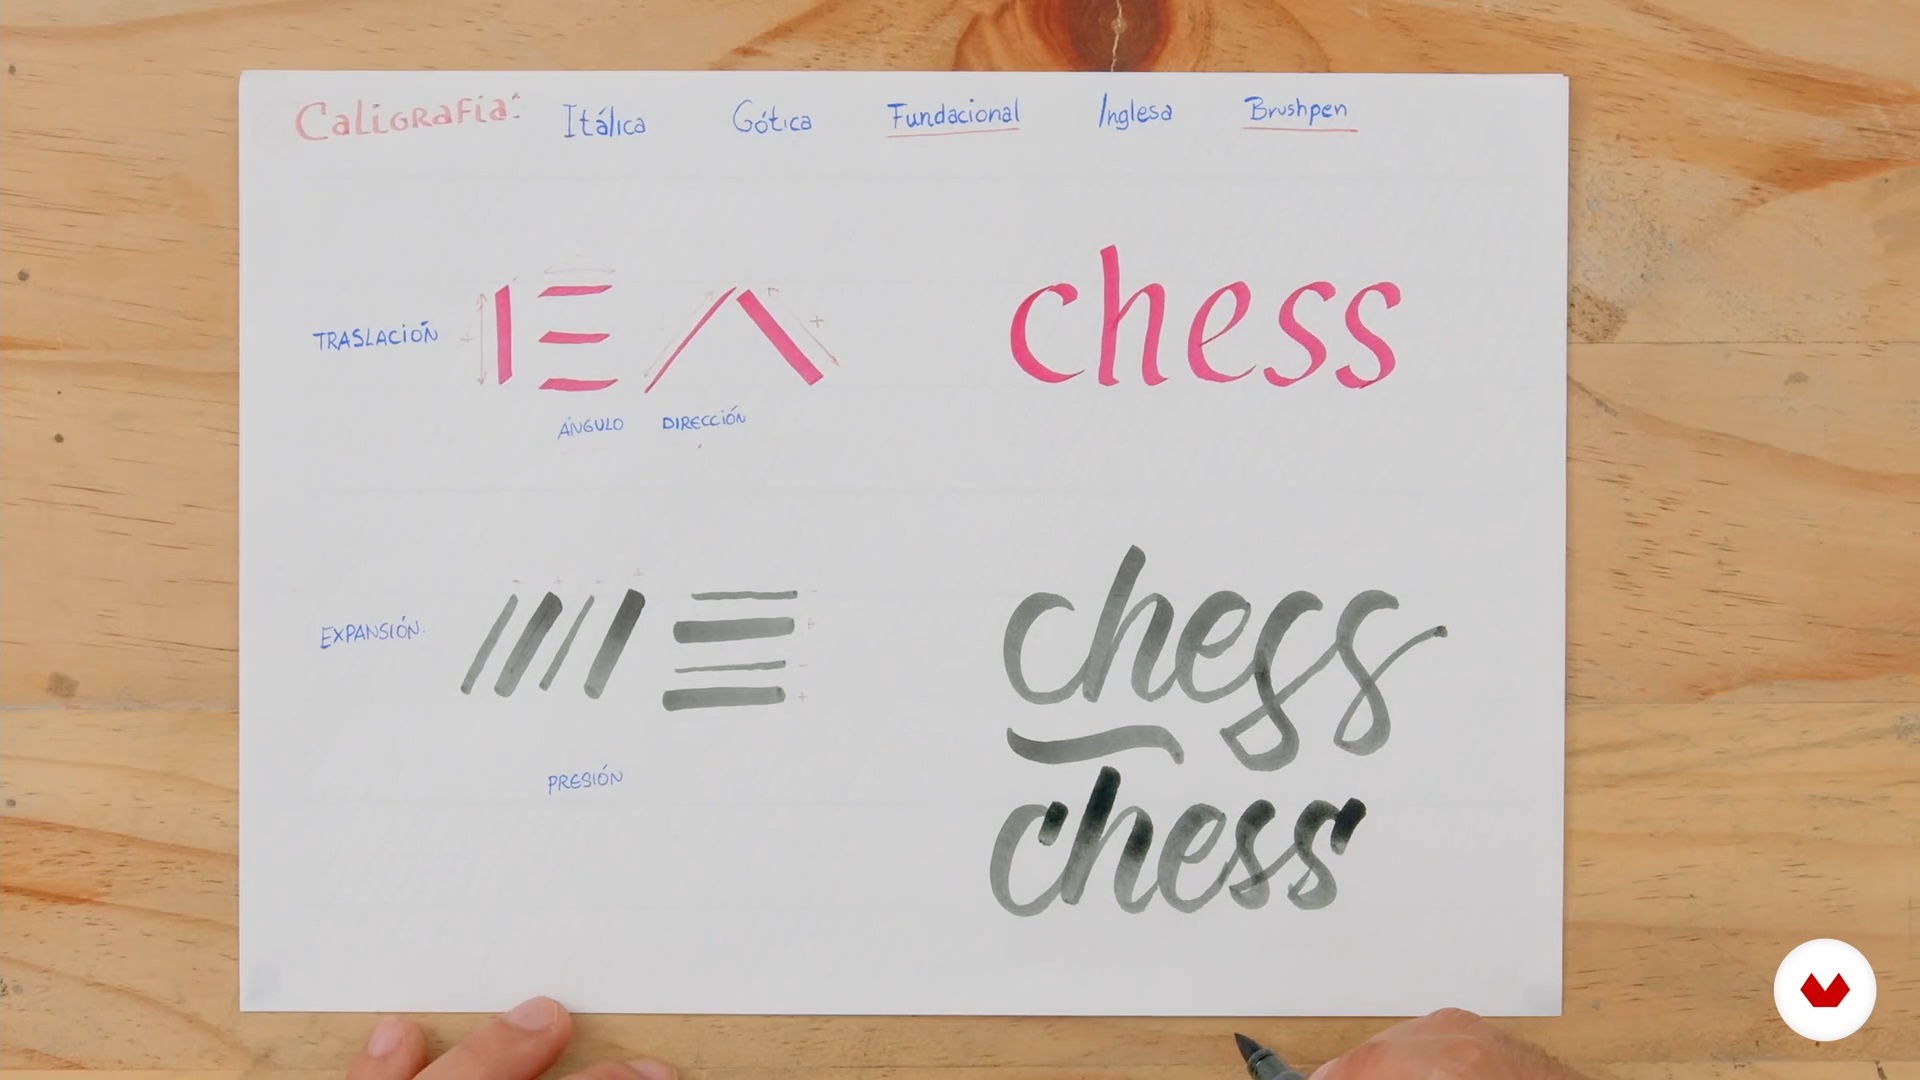 Caligrafia: Itálica Gótica Fundacional Inglesa Brushpen
TRASLACIÓN
chess
ÁNGULO DIRECCIÓN
EXPANSIÓN.
chess
PRESIÓN
chess